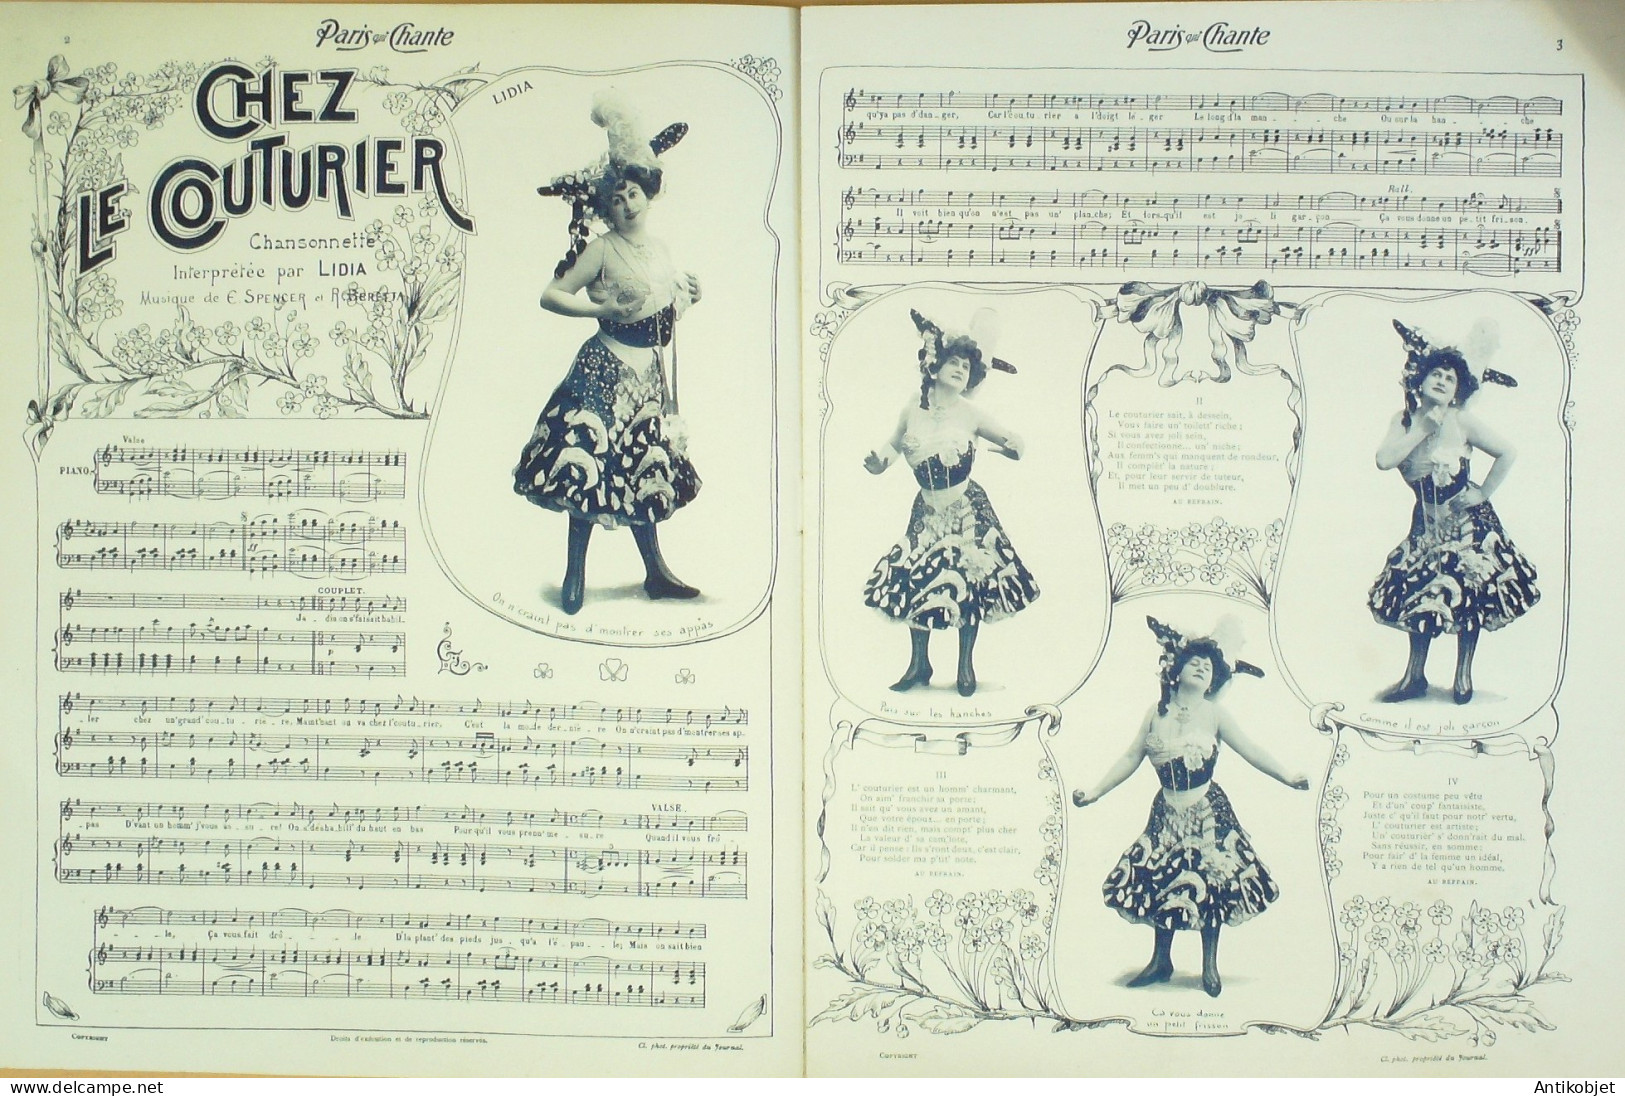 2
Paris qui Chante
CHEZ
LE COUTURIER
Chansonnette
Interprétée par LIDIA
Musique de E. SPENCER et R. BERETTA
LIDIA
On n'craint pas d'montrer ses appas
Valse
PIANO.
COUPLET.
Ja_dis on s'faisait habil_
_ler chez un'grand'cou_tu_riè_re, Maint'nant on va chez l'coutu_rier. C'est la mo_de der_niè_re On n'craint pas d'montrer ses ap_
_pas D'vant un homm' j'vous as_su_re! On s'déshabill' du haut en bas Pour qu'il vous prenn' me_su_re
VALSE.
Quand il vous frô_
_le, Ça vous fait drô_le D'la plant' des pieds jus_qu'à l'é_pau_le; Mais on sait bien
COPYRIGHT
Droits d'exécution et de reproduction réservés.
Cl. phot. propriété du Journal.
Paris qui Chante
3
qu'ya pas d'dan_ger, Car l'cou_tu_rier a l'doigt lé_ger Le long d'la man_che Ou sur la han_che
Rall.
Il voit bien qu'on n'est pas un' plan_che; Et lors_qu'il est jo_li gar_çon Ça vous donne un pe_tit fri_son.
Puis sur les hanches
II
Le couturier sait, à dessein,
Vous faire un' toilett' riche;
Si vous avez joli sein,
Il confectionne... un' niche;
Aux femm's qui manquent de rondeur,
Il complèt' la nature;
Et, pour leur servir de tuteur,
Il met un peu d' doublure.
AU REFRAIN.
Comme il est joli garçon
III
L' couturier est un homm' charmant,
On aim' franchir sa porte;
Il sait qu' vous avez un amant,
Que votre époux... en porte;
Il n'en dit rien, mais compt' plus cher
La valeur d' sa cam'lote,
Car il pense: Ils s'ront deux, c'est clair,
Pour solder ma p'tit' note.
AU REFRAIN.
Ça vous donne
un petit frisson
IV
Pour un costume peu vêtu
Et d'un' coup' fantaisiste,
Juste c' qu'il faut pour notr' vertu,
L' couturier est artiste;
Un couturièr' s' donn'rait du mal.
Sans réussir, en somme;
Pour fair' d' la femme un idéal,
Y a rien de tel qu'un homme.
AU REFRAIN.
COPYRIGHT
Cl. phot. propriété du Journal.
Antikobjet